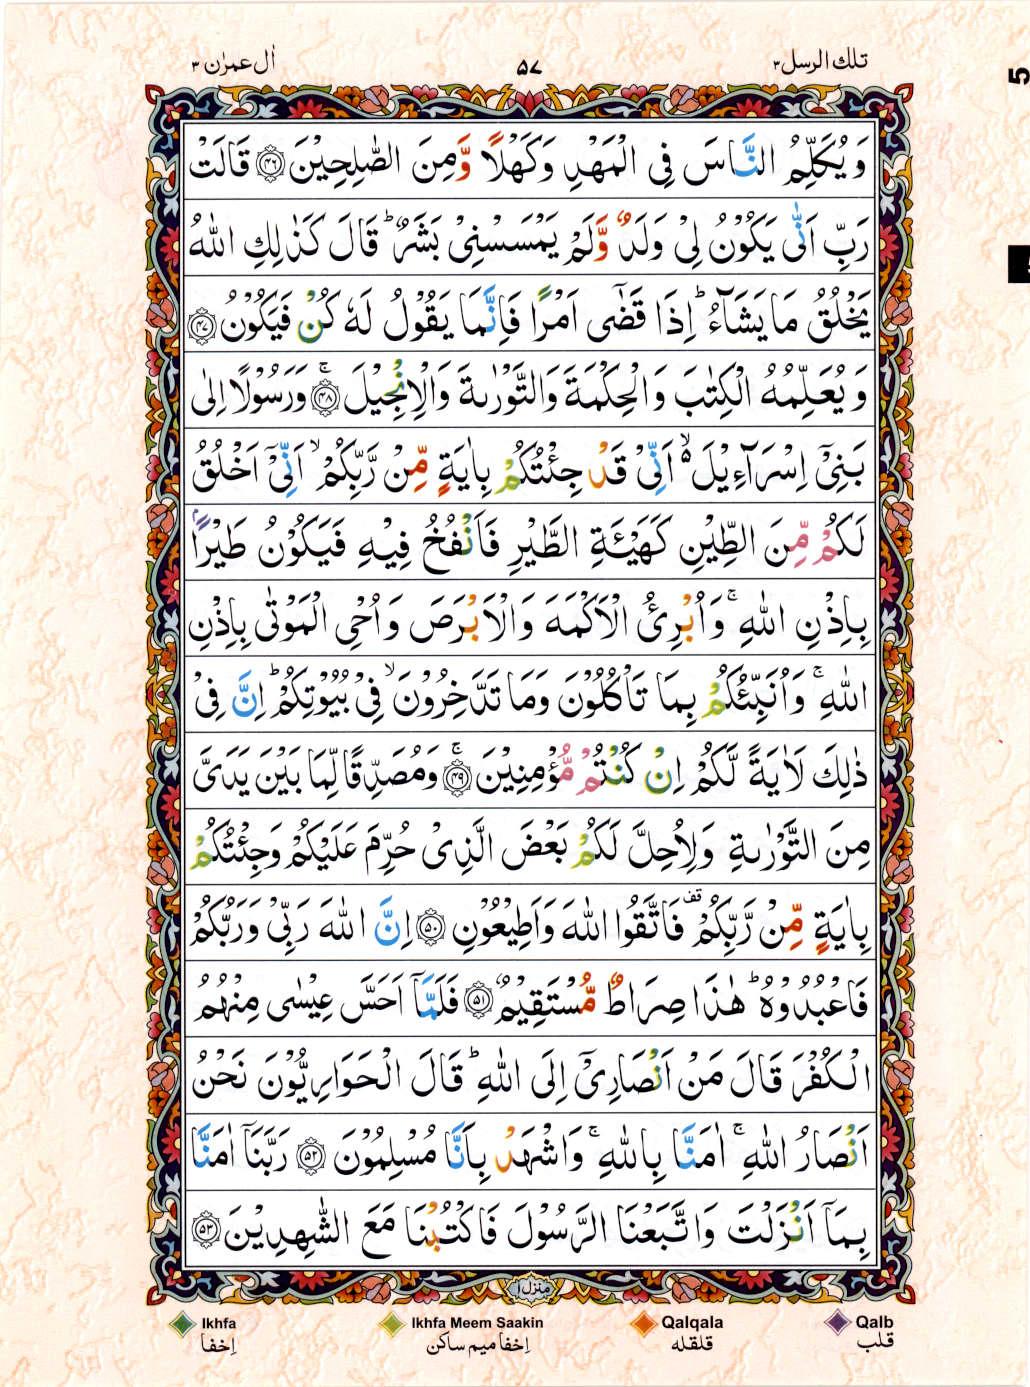 اٰل عمرٰن ۳
۵۷
تلك الرسل ۳
5
وَيُكَلِّمُ النَّاسَ فِي الْمَهْدِ وَكَهْلًا وَّمِنَ الصّٰلِحِيْنَ ﴿۴۶﴾ قَالَتْ
رَبِّ اَنّٰى يَكُوْنُ لِيْ وَلَدٌ وَّلَمْ يَمْسَسْنِيْ بَشَرٌ ؕ قَالَ كَذٰلِكِ اللّٰهُ
يَخْلُقُ مَا يَشَآءُ ؕ اِذَا قَضٰۤى اَمْرًا فَاِنَّمَا يَقُوْلُ لَهٗ كُنْ فَيَكُوْنُ ﴿۴۷﴾
وَيُعَلِّمُهُ الْكِتٰبَ وَالْحِكْمَةَ وَالتَّوْرٰىةَ وَالْاِنْجِيْلَ ۚ﴿۴۸﴾ وَرَسُوْلًا اِلٰى
بَنِيْۤ اِسْرَآءِيْلَ ۙ۬ اَنِّيْ قَدْ جِئْتُكُمْ بِاٰيَةٍ مِّنْ رَّبِّكُمْ ۙ اَنِّيْۤ اَخْلُقُ
لَكُمْ مِّنَ الطِّيْنِ كَهَيْئَةِ الطَّيْرِ فَاَنْفُخُ فِيْهِ فَيَكُوْنُ طَيْرًۢا
بِاِذْنِ اللّٰهِ ۚ وَاُبْرِئُ الْاَكْمَهَ وَالْاَبْرَصَ وَاُحْيِ الْمَوْتٰى بِاِذْنِ
اللّٰهِ ۚ وَاُنَبِّئُكُمْ بِمَا تَاْكُلُوْنَ وَمَا تَدَّخِرُوْنَ ۙ فِيْ بُيُوْتِكُمْ ؕ اِنَّ فِيْ
ذٰلِكَ لَاٰيَةً لَّكُمْ اِنْ كُنْتُمْ مُّؤْمِنِيْنَ ۚ﴿۴۹﴾ وَمُصَدِّقًا لِّمَا بَيْنَ يَدَيَّ
مِنَ التَّوْرٰىةِ وَلِاُحِلَّ لَكُمْ بَعْضَ الَّذِيْ حُرِّمَ عَلَيْكُمْ وَجِئْتُكُمْ
بِاٰيَةٍ مِّنْ رَّبِّكُمْ قف فَاتَّقُوا اللّٰهَ وَاَطِيْعُوْنِ ﴿۵۰﴾ اِنَّ اللّٰهَ رَبِّيْ وَرَبُّكُمْ
فَاعْبُدُوْهُ ؕ هٰذَا صِرَاطٌ مُّسْتَقِيْمٌ ﴿۵۱﴾ فَلَمَّاۤ اَحَسَّ عِيْسٰى مِنْهُمُ
الْكُفْرَ قَالَ مَنْ اَنْصَارِيْۤ اِلَى اللّٰهِ ؕ قَالَ الْحَوَارِيُّوْنَ نَحْنُ
اَنْصَارُ اللّٰهِ ۚ اٰمَنَّا بِاللّٰهِ ۚ وَاشْهَدْ بِاَنَّا مُسْلِمُوْنَ ﴿۵۲﴾ رَبَّنَاۤ اٰمَنَّا
بِمَاۤ اَنْزَلْتَ وَاتَّبَعْنَا الرَّسُوْلَ فَاكْتُبْنَا مَعَ الشّٰهِدِيْنَ ﴿۵۳﴾
منزل ۱
Ikhfa
Ikhfa Meem Saakin
Qalqala
Qalb
اِخفا
اِخفا میم ساکن
قلقله
قلب